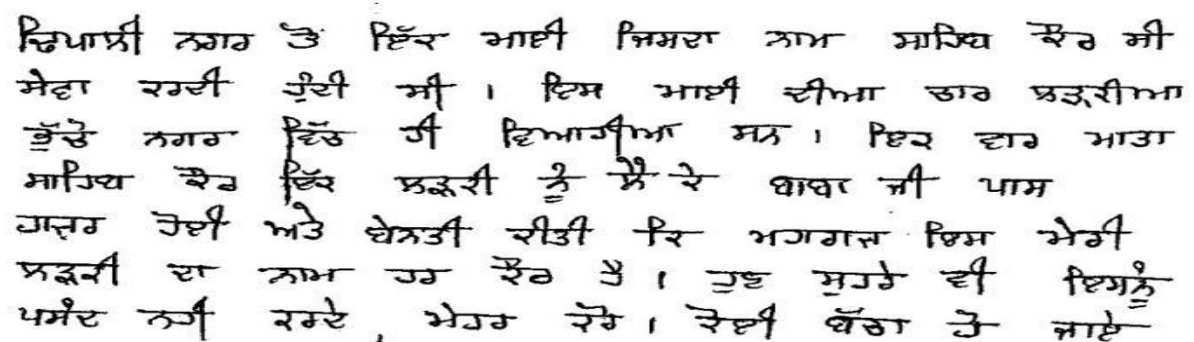 ਢਿਪਾਲੀ ਨਗਰ ਤੋਂ ਇੱਕ ਮਾਈ ਜਿਸਦਾ ਨਾਮ ਸਾਹਿਬ ਕੌਰ ਸੀ
ਸੇਵਾ ਕਰਦੀ ਹੁੰਦੀ ਸੀ । ਇਸ ਮਾਈ ਦੀਆ ਚਾਰ ਲੜਕੀਆ
ਭੁੱਚੋ ਨਗਰ ਵਿੱਚ ਹੀ ਵਿਆਹੀਆ ਸਨ । ਇਕ ਵਾਰ ਮਾਤਾ
ਸਾਹਿਬ ਕੌਰ ਇੱਕ ਲੜਕੀ ਨੂੰ ਲੈ ਕੇ ਬਾਬਾ ਜੀ ਪਾਸ
ਹਾਜ਼ਰ ਹੋਈ ਅਤੇ ਬੇਨਤੀ ਕੀਤੀ ਕਿ ਮਹਾਰਾਜ ਇਸ ਮੇਰੀ
ਲੜਕੀ ਦਾ ਨਾਮ ਹਰ ਕੌਰ ਹੈ । ਹੁਣ ਸੁਹਰੇ ਵੀ ਇਸਨੂੰ
ਪਸੰਦ ਨਹੀ ਕਰਦੇ , ਮੇਹਰ ਕਰੋ । ਕੋਈ ਬੱਚਾ ਹੋ ਜਾਏ